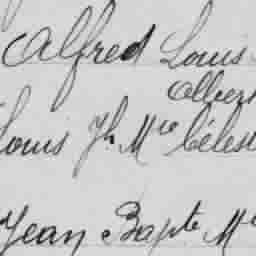 Alfred Louis
Albert
Louis Jh Mie Célest
Jean Bapte M